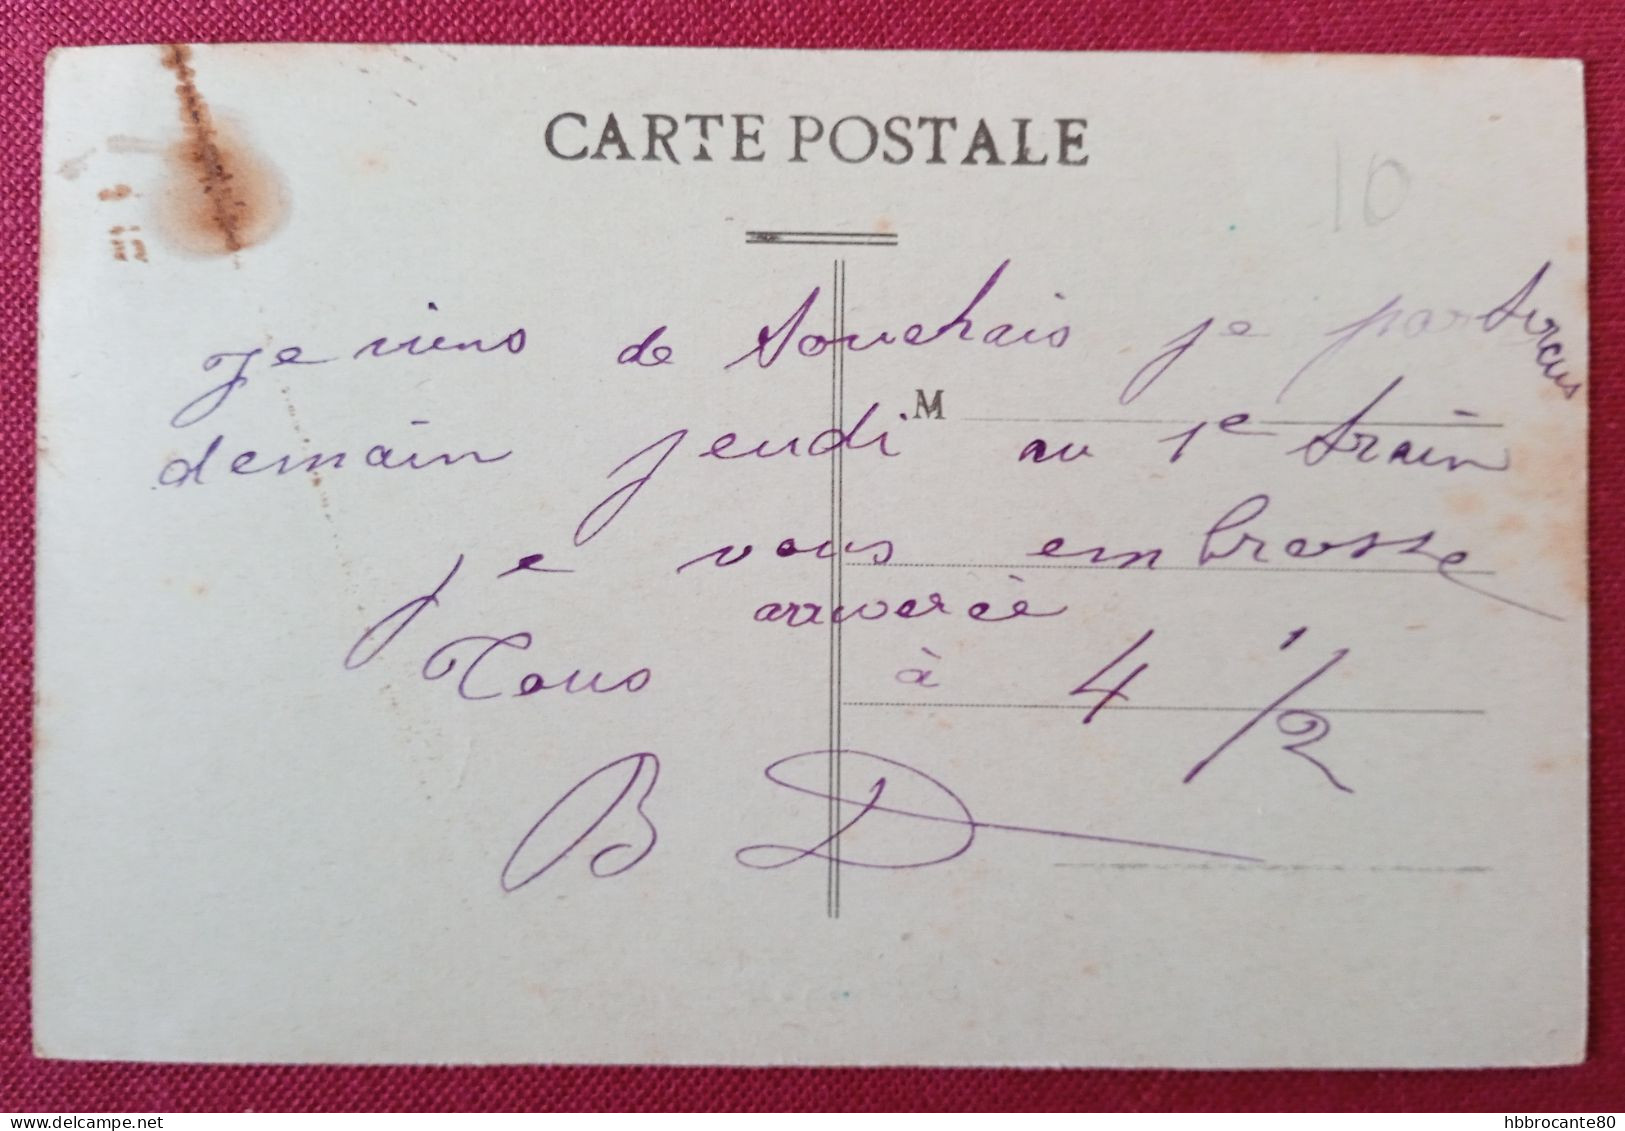 CARTE POSTALE
10
je viens de Souchais je partirais
M
demain jeudi au 1e train
je vous embrasse
arriverèe
Tous à 4 1/2
B D
hbbrocante80